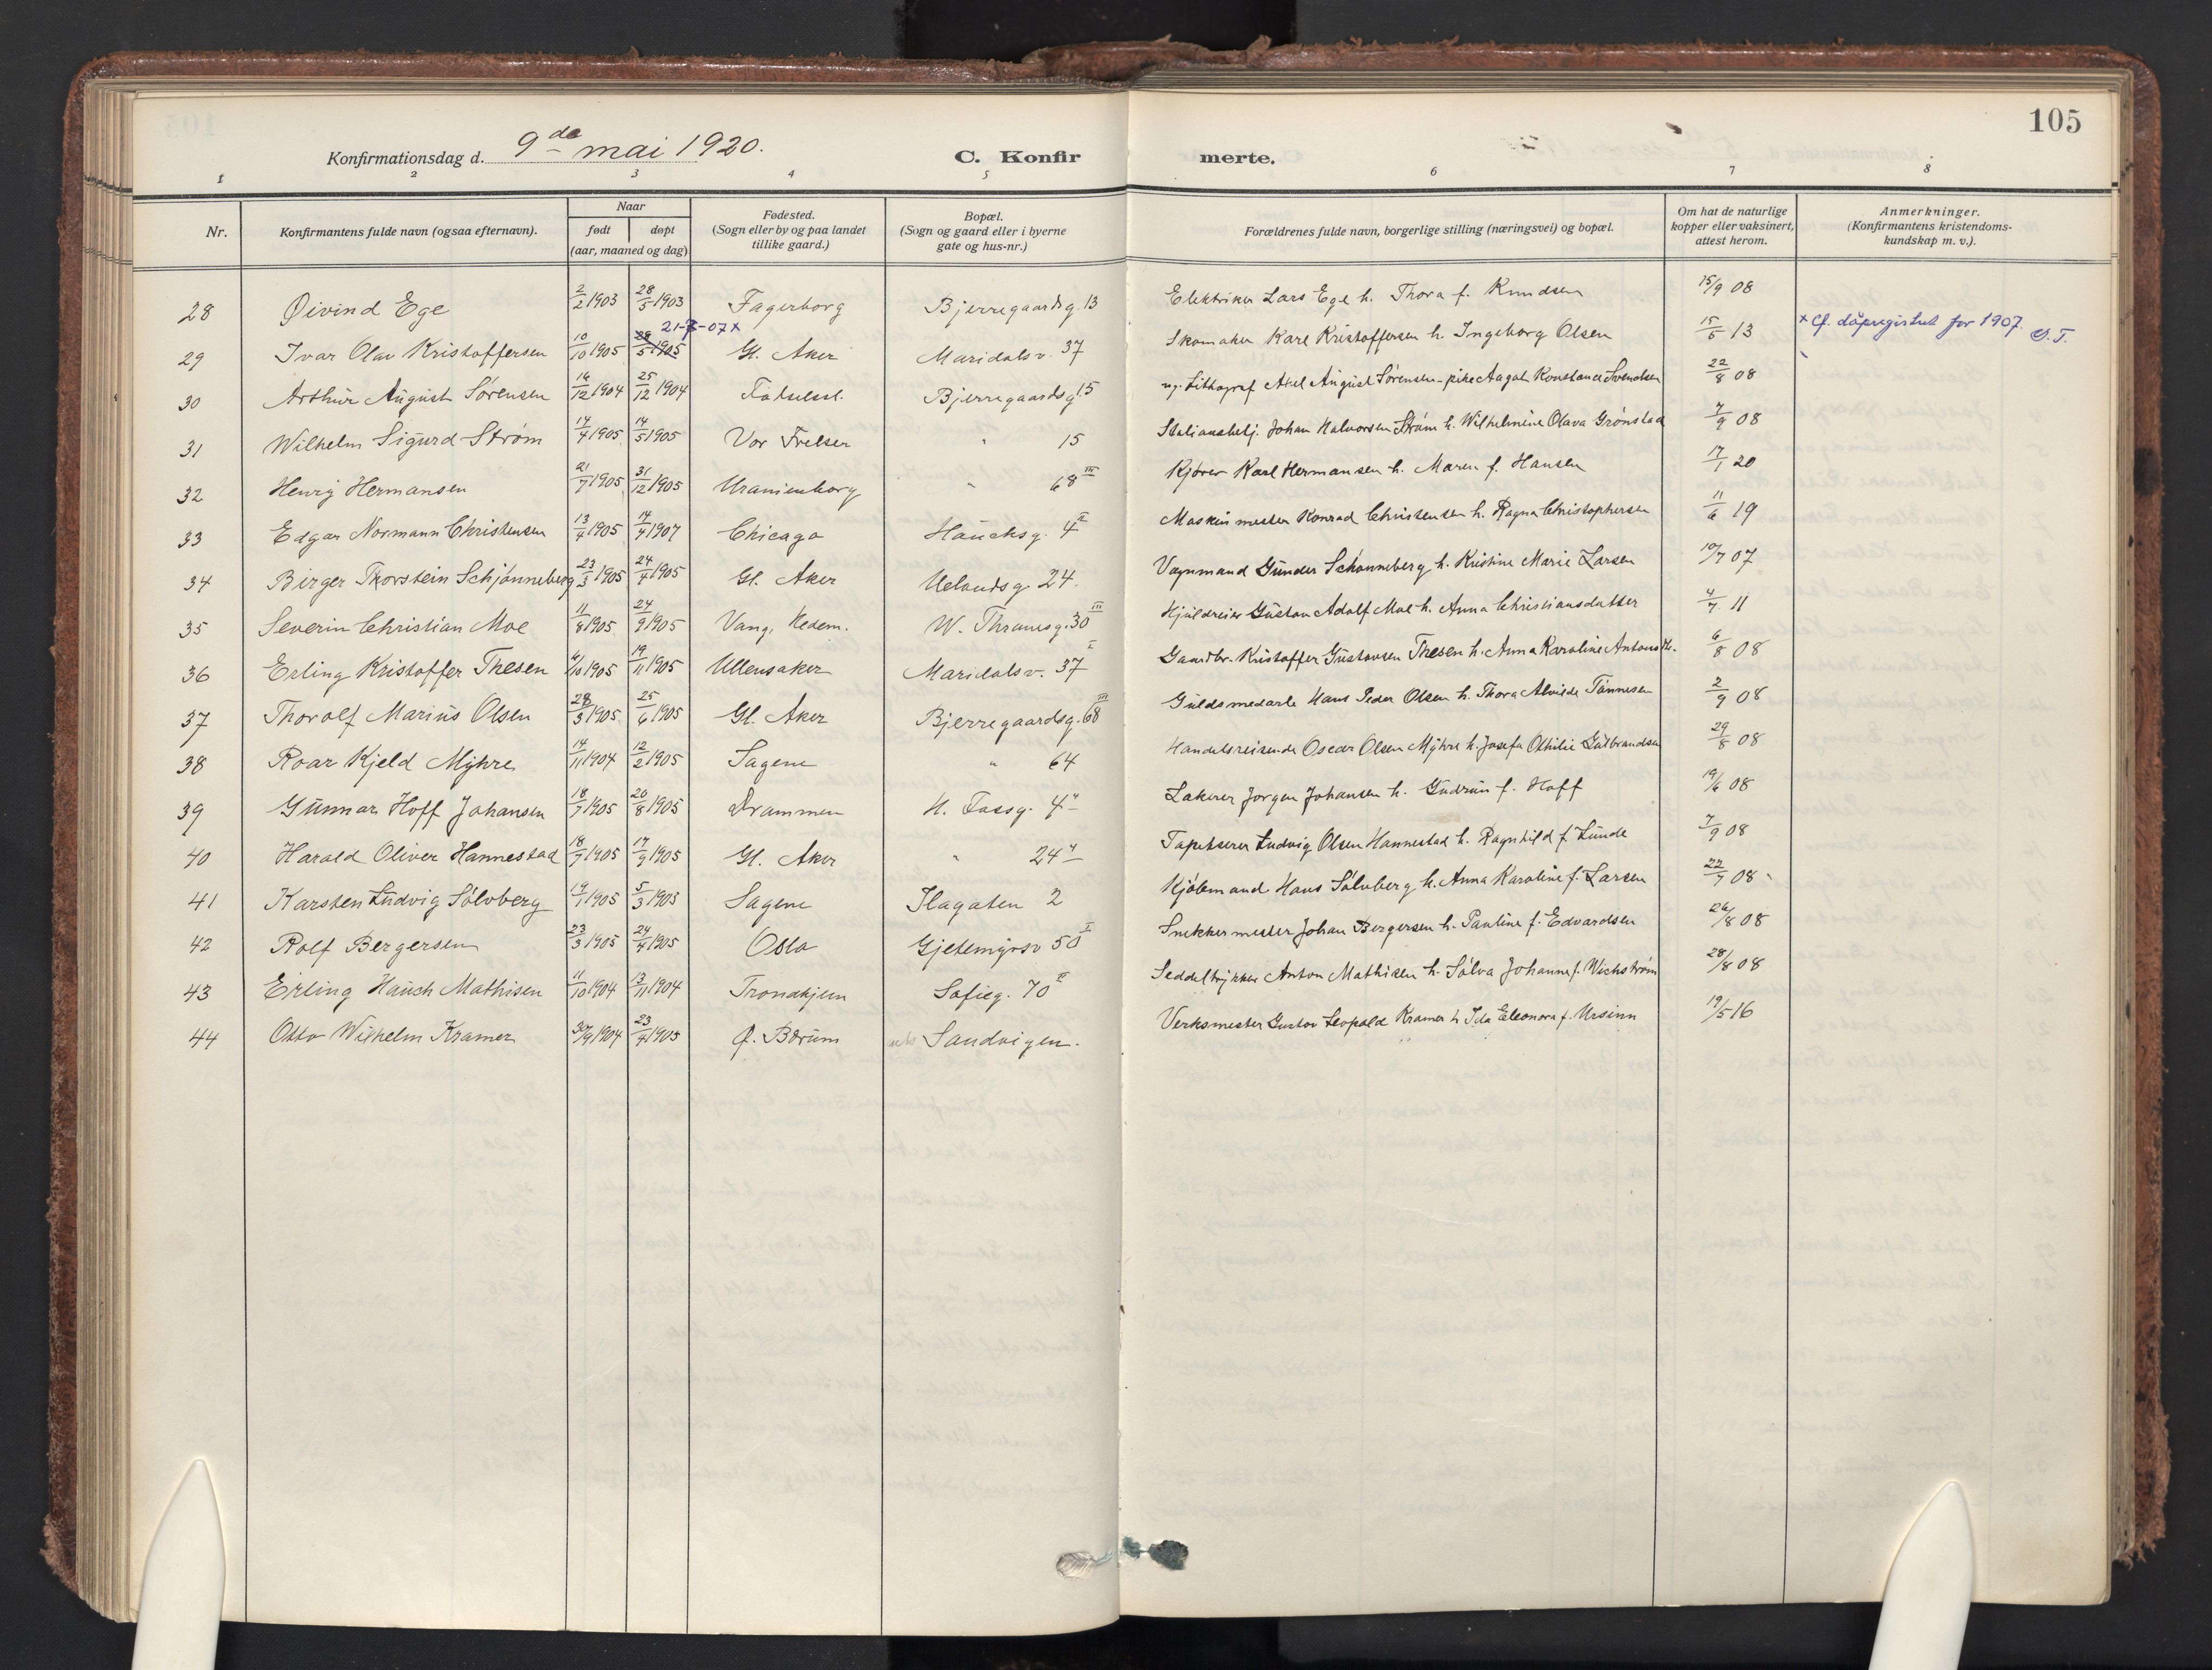 105
Konfirmationsdag d. 9de mai 1920. C. Konfirmerte.
1 2 3 4 5 6 7 8
Nr. Konfirmantens fulde navn (ogsaa efternavn). Naar født døpt (aar, maaned og dag) Fødested. (Sogn eller by og paa landet tillike gaard.) Bopæl. (Sogn og gaard eller i byerne gate og hus-nr.) Forældrenes fulde navn, borgerlige stilling (næringsvei) og bopæl. Om hat de naturlige kopper eller vaksinert, attest herom. Anmerkninger. (Konfirmantens kristendoms-kundskap m. v.).
28 Øivind Ege 2/2 1903 28/5 1903 Fagerborg Bjerregaardsg. 13 Elektriker Lars Ege h. Thora f. Knudsen 15/9 08
21-7-07 x
29 Ivar Olav Kristoffersen 10/10 1905 28/5 1905 Gl. Aker Maridalsv. 37 Skomaker Karl Kristoffersen h. Ingeborg Olsen 15/5 13 x Cf. dåpregistret for 1907. S.T.
30 Arthur August Sørensen 16/12 1904 25/12 1904 Fødselsst. Bjerregaardsg. 15 ug. Lithograf Axel August Sørensen - pike Aagot Konstance Svendsen 22/8 08
31 Wilhelm Sigurd Strøm 17/4 1905 14/5 1905 Vor Frelser " 15 Stationsbetj. Johan Halvorsen Strøm h. Wilhelmine Olava Grønstad 7/9 08
32 Henry Hermansen 21/7 1905 31/12 1905 Uranienborg " 68 III Kjører Karl Hermansen h. Maren f. Hansen 17/1 20
33 Edgar Normann Christensen 13/4 1905 14/4 1907 Chicago Hauchsg. 4 II Maskinmester Konrad Christensen h. Ragna Christophersen 11/6 19
34 Birger Thorstein Schjønneberg 23/3 1905 24/4 1905 Gl. Aker Uelandsg 24. Vognmand Gunder Schønneberg h. Kristine Marie Larsen 10/7 07
35 Severin Christian Moe 11/8 1905 24/9 1905 Vang, Hedem. W. Thranesg. 30 III Hjuldreier Gustav Adolf Moe h. Anna Christiansdatter 4/7 11
36 Erling Kristoffer Thesen 6/10 1905 19/11 1905 Ullensaker Maridalsv. 37 I Gaardbr. Kristoffer Gustavsen Thesen h. Anna Karoline Antonsdt. 6/8 08
37 Thorolf Marius Olsen 28/3 1905 25/6 1905 Gl. Aker Bjerregaardsg. 68 III Guldsmedarb. Hans Peder Olsen h. Thora Alvilde Tønnesen 2/9 08
38 Roar Kjeld Myhre 14/11 1904 12/2 1905 Sagene " 64 Handelsreisende Oscar Olsen Myhre h. Josefa Othilie Gulbrandsen 29/8 08
39 Gunnar Hoff Johansen 18/7 1905 20/8 1905 Drammen H. Fossg. 4" Lakerer Jørgen Johansen h. Gudrun f. Hoff 19/6 08
40 Harald Oliver Hannestad 18/7 1905 17/9 1905 Gl. Aker " 24" Tapetserer Ludvig Olsen Hannestad h. Ragnhild f. Lunde 7/9 08
41 Karsten Ludvig Sølvberg 19/1 1905 5/3 1905 Sagene Ilagaten 2 Kjøbmand Hans Sølvberg h. Anna Karoline f. Larsen 22/7 08
42 Rolf Bergersen 23/3 1905 24/4 1905 Oslo Gjetemyrsv 50 I Snekkermester Johan Bergersen h. Pauline f. Edvardsen 26/8 08
43 Erling Hauch Mathisen 11/10 1904 13/11 1904 Trondhjem Sofieg. 70 II Seddeltrykker Anton Mathisen h. Sølva Johanne f. Wichstrøm 28/8 08
44 Otto Wilhelm Kramer 30/9 1904 23/4 1905 Ø. Bærum Sandvigen. Verksmester Gustav Leopold Kramer h Ida Eleonora f. Ursinn 19/5 16